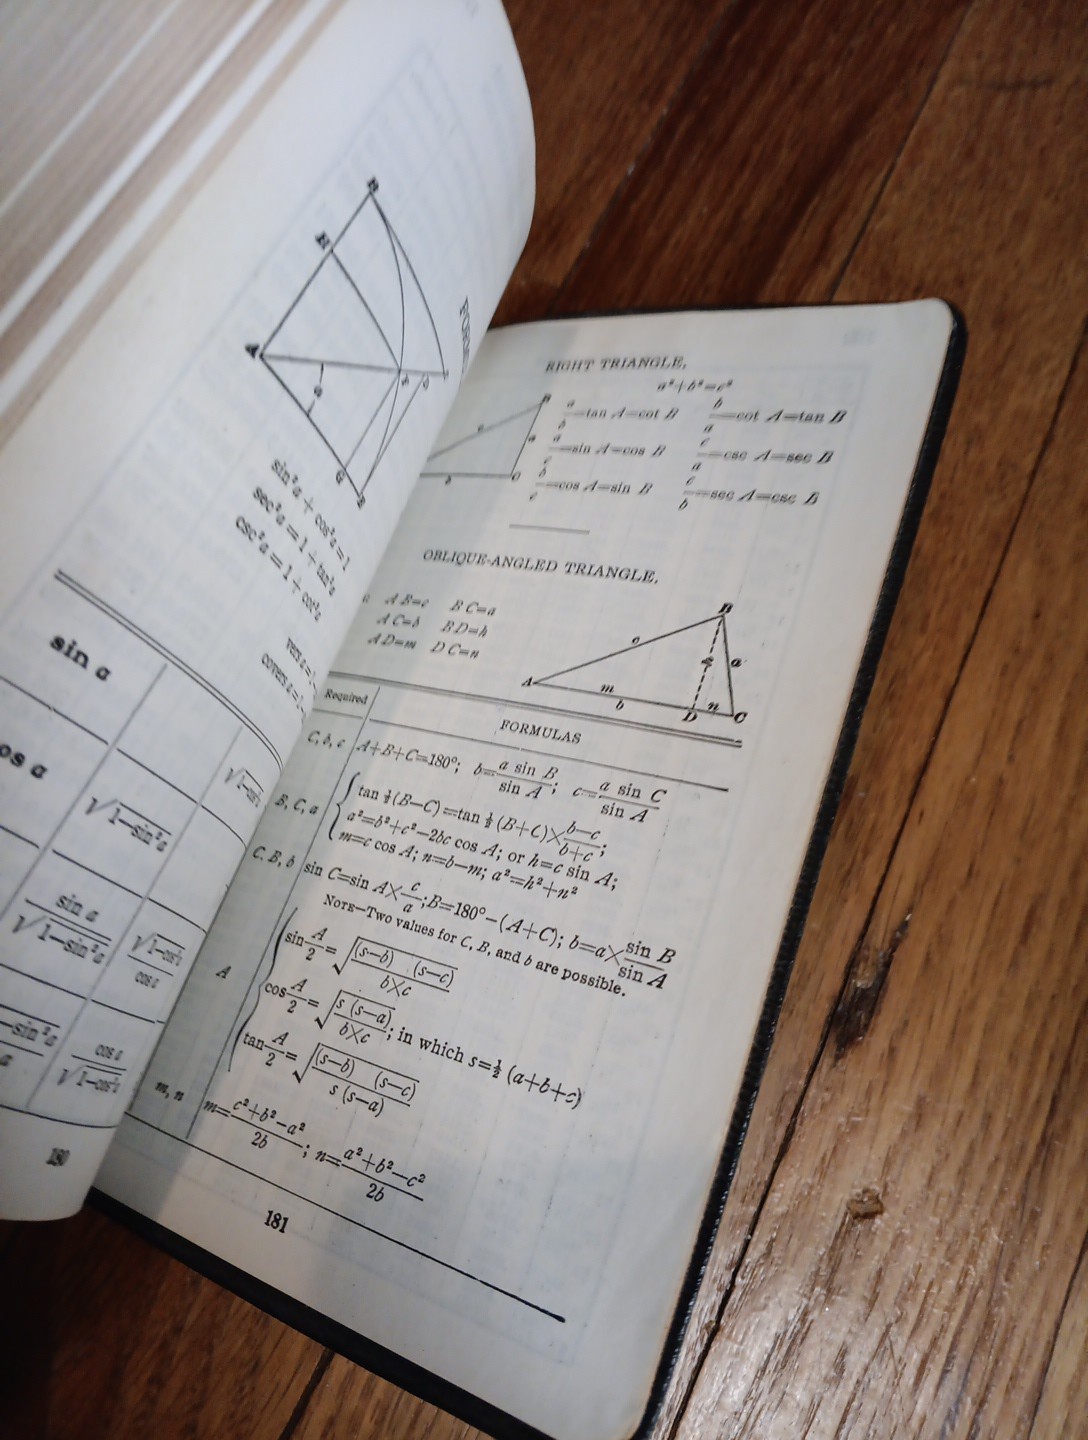 sin²a + cos²a = 1
sec²a = 1 + tan²a
csc²a = 1 + cot²a
vers a = 1
covers a = 1
sin a
os a
√1—sin²a
sin a / √1—sin²a
cos a / √1—cos²a
180
RIGHT TRIANGLE.
a²+b²=c²
a/b=tan A=cot B   b/a=cot A=tan B
a/c=sin A=cos B   c/a=csc A=sec B
b/c=cos A=sin B   c/b=sec A=csc B
OBLIQUE-ANGLED TRIANGLE.
A B=c   B C=a
A C=b   B D=h
A D=m   D C=n
A B C D c a h m n b
Required   FORMULAS
C, b, c   A+B+C=180°; b=a sin B/sin A; c=a sin C/sin A
B, C, a   tan ½(B—C)=tan ½(B+C)×b—c/b+c;
a²=b²+c²—2bc cos A; or h=c sin A;
m=c cos A; n=b—m; a²=h²+n²
C, B, b   sin C=sin A×c/a; B=180°—(A+C); b=a×sin B/sin A
NOTE—Two values for C, B, and b are possible.
A   sin A/2=√(s—b) (s—c)/b×c
cos A/2=√s (s—a)/b×c; in which s=½ (a+b+c)
tan A/2=√(s—b) (s—c)/s (s—a)
m, n   m=c²+b²—a²/2b; n=a²+b²—c²/2b
181